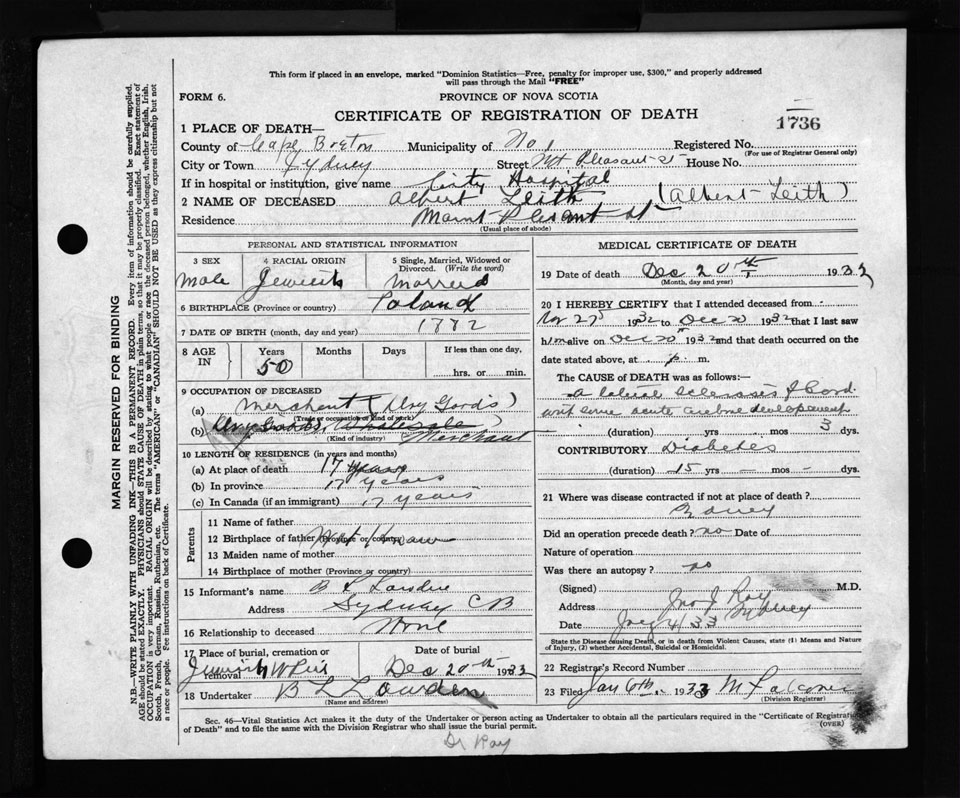 This form if placed in an envelope, marked "Dominion Statistics—Free, penalty for improper use, $300," and properly addressed
will pass through the Mail "FREE"
FORM 6.
PROVINCE OF NOVA SCOTIA
CERTIFICATE OF REGISTRATION OF DEATH
1736
1 PLACE OF DEATH—
County of Cape Breton Municipality of No 1 Registered No.
(For use of Registrar General only)
City or Town Sydney Street Mt Pleasant St House No.
If in hospital or institution, give name City Hospital
2 NAME OF DECEASED Albert Leith (Albert Leith)
Residence Mount Plesant St
(Usual place of abode)
PERSONAL AND STATISTICAL INFORMATION
3 SEX 4 RACIAL ORIGIN 5 Single, Married, Widowed or Divorced. (Write the word)
Male Jewish Married
6 BIRTHPLACE (Province or country) Poland
7 DATE OF BIRTH (month, day and year) 1882
8 AGE IN Years Months Days If less than one day,
50 hrs. or min.
9 OCCUPATION OF DECEASED
(a) Merchant (Dry Goods)
(Trade or occupation or kind of work)
(b) Dry Goods Wholesale Merchant
(Kind of industry)
10 LENGTH OF RESIDENCE (in years and months)
(a) At place of death 17 years
(b) In province 17 years
(c) In Canada (if an immigrant) 17 years
Parents
11 Name of father
12 Birthplace of father (Province or country) Not Known
13 Maiden name of mother
14 Birthplace of mother (Province or country)
15 Informant's name B L
Address Sydney CB
16 Relationship to deceased None
17 Place of burial, cremation or removal Date of burial
Jewish Dec 20th 1932
18 Undertaker B L Lowden
(Name and address)
MEDICAL CERTIFICATE OF DEATH
19 Date of death Dec 20th 1932
(Month, day and year)
20 I HEREBY CERTIFY that I attended deceased from
Nov 27 1932 to Dec 20 1932 that I last saw
him alive on Dec 20th 1932 and that death occurred on the
date stated above, at p. m.
The CAUSE OF DEATH was as follows:—
lateral sclerosis of cord
with some acute development
(duration) yrs. mos. 3 dys.
CONTRIBUTORY Diabetes
(duration) 15 yrs. mos. dys.
21 Where was disease contracted if not at place of death?
Did an operation precede death? no Date of
Nature of operation
Was there an autopsy? no
(Signed) Jno J Roy M.D.
Address Sydney
Date 4 33
State the Disease causing Death, or in death from Violent Causes, state (1) Means and Nature
of Injury, (2) whether Accidental, Suicidal or Homicidal.
22 Registrar's Record Number
23 Filed Jan 6th, 1933 M Falconer
(Division Registrar)
Sec. 46—Vital Statistics Act makes it the duty of the Undertaker or person acting as Undertaker to obtain all the particulars required in the "Certificate of Registration
of Death" and to file the same with the Division Registrar who shall issue the burial permit.
(OVER)
Dr Roy
MARGIN RESERVED FOR BINDING
N.B.—WRITE PLAINLY WITH UNFADING INK—THIS IS A PERMANENT RECORD. Every item of information should be carefully supplied.
AGE should be stated EXACTLY. PHYSICIANS should STATE CAUSE OF DEATH in plain terms, so that it may be properly classified. Exact statement of
OCCUPATION is very important. RACIAL ORIGIN will be described by stating to what people or race the deceased person belonged, whether English, Irish,
Scotch, French, German, Russian, Ruthenian, etc. The terms "AMERICAN" or "CANADIAN" SHOULD NOT BE USED as they express citizenship but not
a race or people. See instructions on back of Certificate.